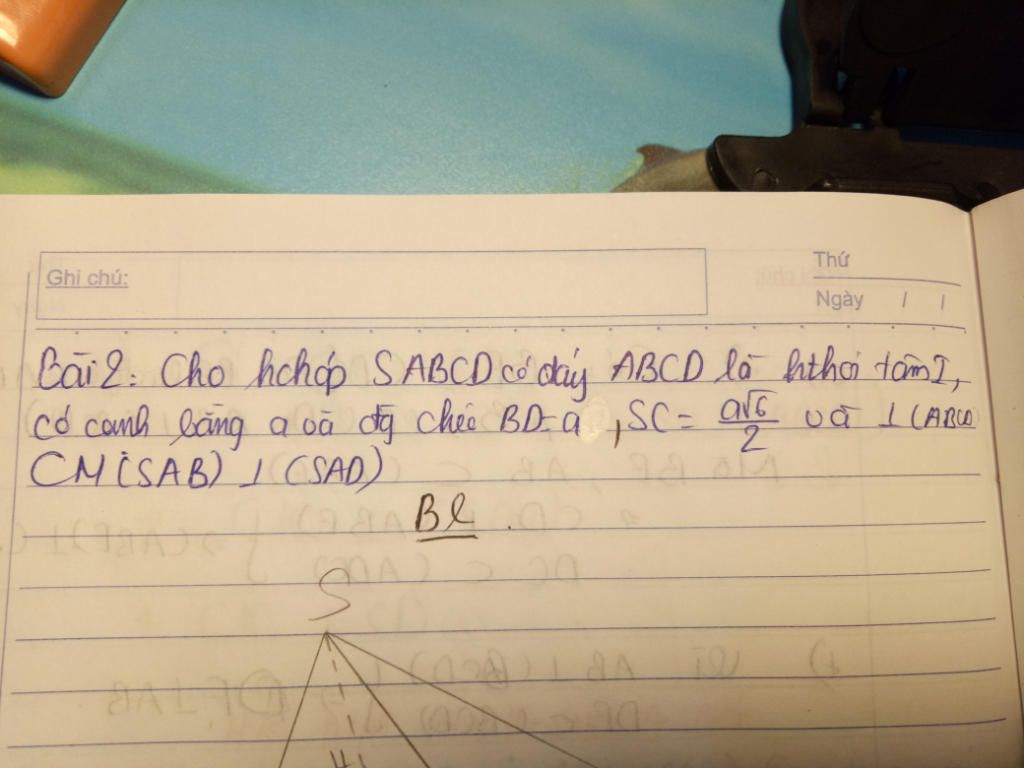 Ghi chú:
Thứ
Ngày / /
Bài 2: Cho hchóp SABCD có đáy ABCD là hthoi tâm I,
có cạnh bằng a và đg chéo BD = a, SC = a√6/2 và ⊥ (ABCD)
CM (SAB) ⊥ (SAD)
Bl.
S